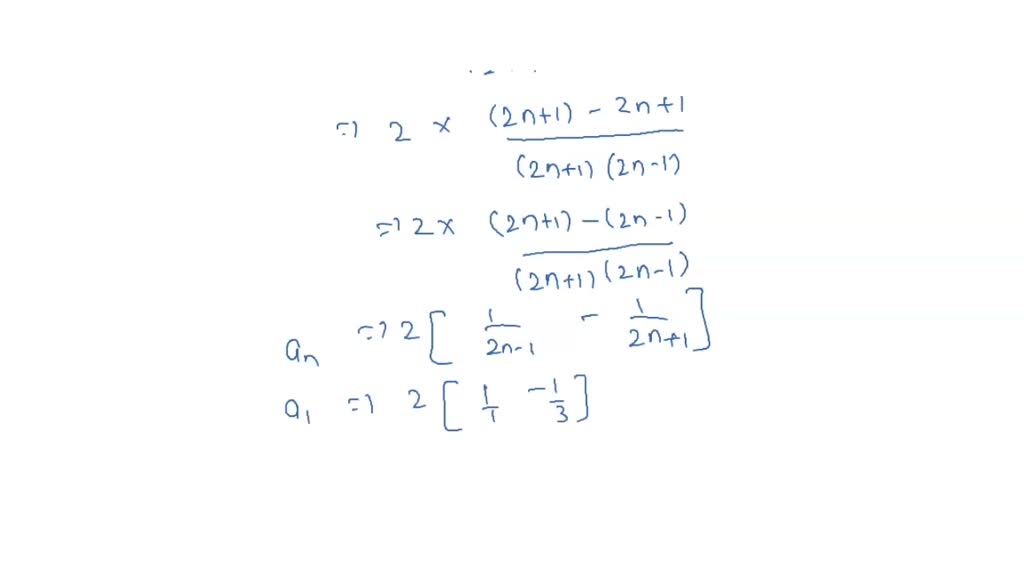 =) 2 × (2n+1) - 2n+1 / (2n+1) (2n-1)
=) 2 × (2n+1) - (2n-1) / (2n+1) (2n-1)
an =) 2 [ 1/2n-1 - 1/2n+1 ]
a1 =) 2 [ 1/1 - 1/3 ]